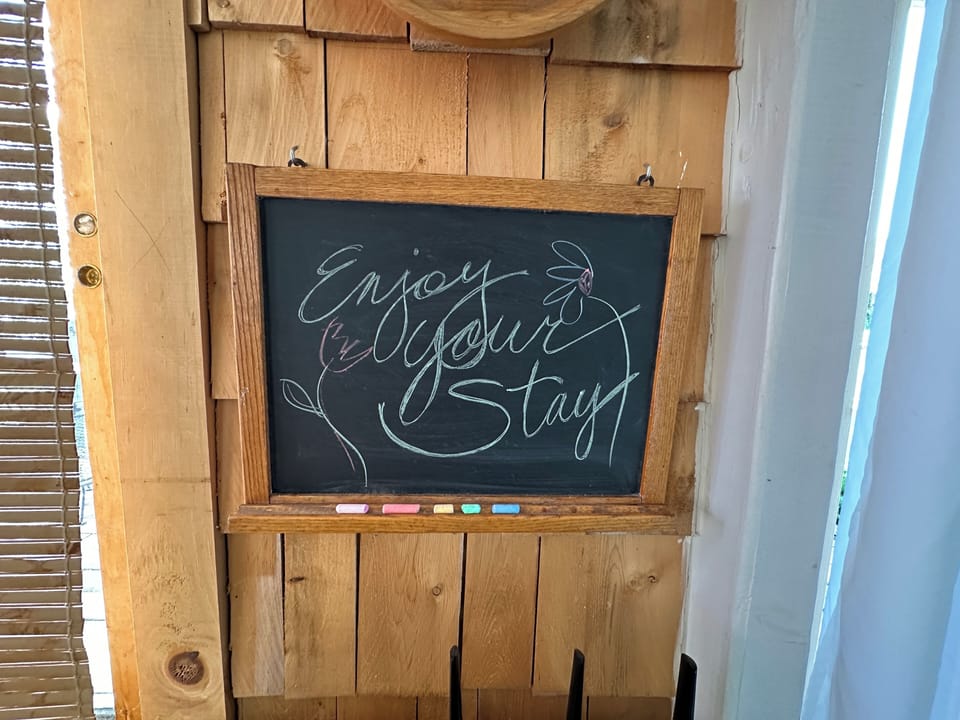 Enjoy
your
Stay